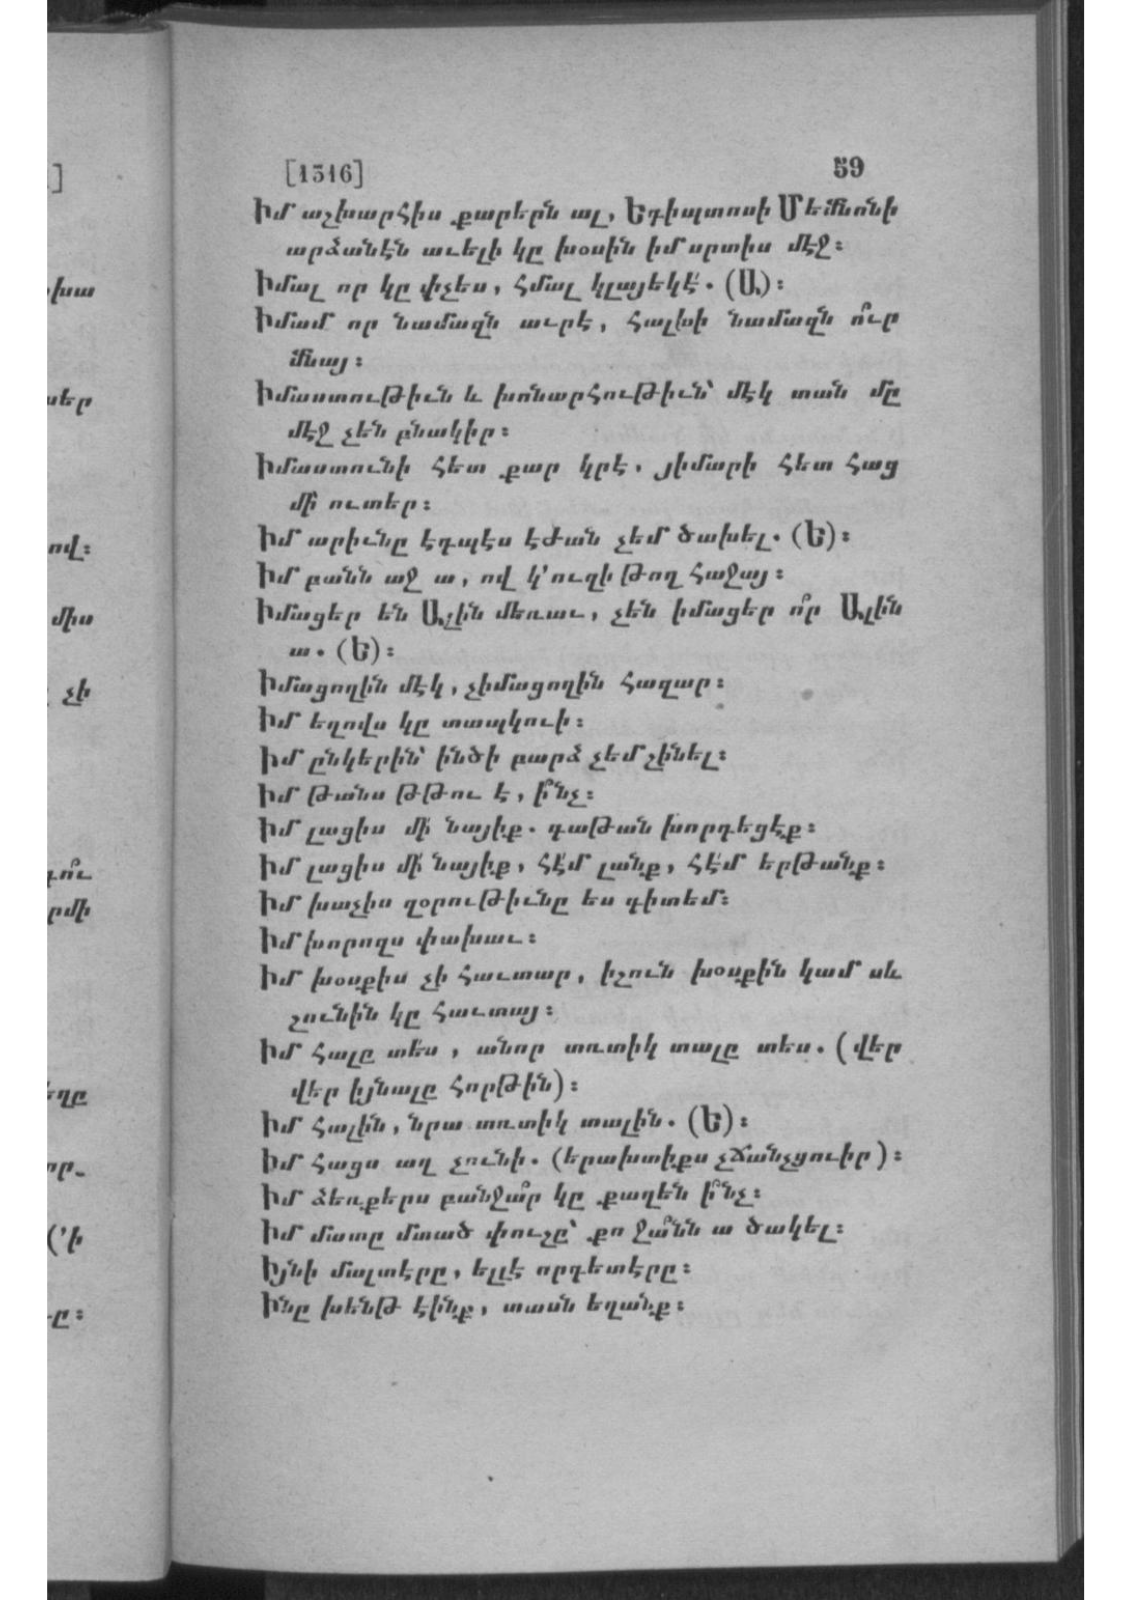 [1316] 59
Իմ աշխարհիս քարերն ալ, Եգիպտոսի Մեմնոնի
արձանէն աւելի կը խօսին իմ սրտիս մէջ:
Իմալ որ կը փչես, հմալ կլայեկէ՛. (Ա):
Իմամ որ նամազն աւրէ, հալխի նամազն ո՞ւր
մնայ:
Իմաստութիւն և խոնարհութիւն՝ մէկ տան մը
մէջ չեն բնակիր:
Իմաստունի հետ քար կրէ, յիմարի հետ հաց
մի՛ ուտեր:
Իմ արիւնը էդպէս էժան չեմ ծախել. (Ե):
Իմ բանն աջ ա, ով կ'ուզի թող հաջայ:
Իմացեր են Ալին մեռաւ, չեն իմացեր ո՞ր Ալին
ա. (Ե):
Իմացողին մէկ, չիմացողին հազար:
Իմ եղովս կը տապկուի:
Իմ ընկերին՝ ինծի բարձ չեմ շինել:
Իմ թանս թթու է, ի՞նչ:
Իմ լացիս մի՛ նայիք. գաթան խորդեցէք:
Իմ լացիս մի՛ նայիք, հէ՛մ լանք, հէ՛մ երթանք:
Իմ խաչիս զօրութիւնը ես գիտեմ:
Իմ խորոզս փախաւ:
Իմ խօսքիս չի հաւտար, իշուն խօսքին կամ սև
շունին կը հաւտայ:
Իմ հալը տե՛ս, անոր տռտիկ տալը տես. (վեր
վեր իյնալը հորթին):
Իմ հալին, նրա տռտիկ տալին. (Ե):
Իմ հացս աղ չունի. (երախտիքս չճանչցուիր):
Իմ ձեռքերս բանջա՞ր կը քաղեն ի՞նչ:
Իմ մատը մտած փուշը՝ քո ջա՞նն ա ծակել:
Իյնի մալտէրը, ելլէ որդետէրը:
Ինը խենթ էինք, տասն եղանք: